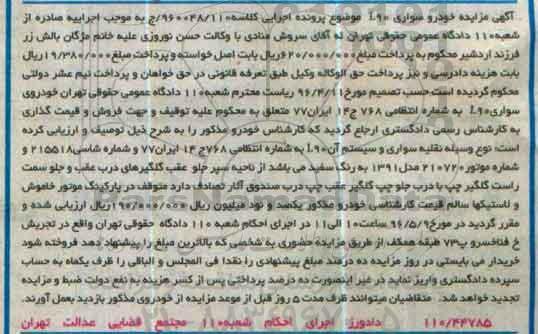 آگهی مزایده خودرو سواری L۹۰ موضوع پرونده اجرایی کلاسه ۹۶۰۰۴۸/۱۱۰/ج به موجب اجراییه صادره از
شعبه ۱۱۰ دادگاه عمومی حقوقی تهران له آقای سروش منادی با وکالت حسن نوروزی علیه خانم مژگان بالش زر
فرزند اردشیر محکوم به پرداخت مبلغ ۶۲۰/۰۰۰/۰۰۰ ریال بابت اصل خواسته و پرداخت مبلغ ۱۹/۳۸۰/۰۰۰ ریال
بابت هزینه دادرسی و نیز پرداخت حق الوکاله وکیل طبق تعرفه قانونی در حق خواهان و پرداخت نیم عشر دولتی
محکوم گردیده است حسب تصمیم مورخ ۹۶/۴/۱۱ ریاست محترم شعبه ۱۱۰ دادگاه عمومی حقوقی تهران خودروی
سواری L۹۰ به شماره انتظامی ۷۶۸ ج ۱۴ ایران ۷۷ متعلق به محکوم علیه توقیف و جهت فروش و قیمت گذاری
به کارشناس رسمی دادگستری ارجاع گردید که کارشناس خودرو مذکور را به شرح ذیل توصیف و ارزیابی کرده
است: نوع وسیله نقلیه سواری و سیستم آن L۹۰ به شماره انتظامی ۷۶۸ ج ۱۴ ایران ۷۷ و شماره شاسی ۲۱۵۵۱۸ و
شماره موتور ۲۱۰۷۲۰ مدل ۱۳۹۱ به رنگ سفید می باشد از ناحیه سپر جلو عقب گلگیرهای درب عقب و جلو سمت
راست گلگیر چپ با درب جلو چپ گلگیر عقب چپ درب صندوق آثار تصادف دارد متوقف در پارکینگ موتور خاموش
و لاستیکها سالم قیمت کارشناسی خودرو مذکور یکصد و نود میلیون ریال ۱۹۰/۰۰۰/۰۰۰ ریال ارزیابی شده و
مقرر گردید در مورخ ۹۶/۵/۹ ساعت ۱۰ الی ۱۱ در اجرای احکام شعبه ۱۱۰ دادگاه حقوقی تهران واقع در تجریش
خ فناخسرو پ ۷۳ طبقه همکف از طریق مزایده حضوری به شخصی که بالاترین مبلغ را پیشنهاد دهد فروخته شود
خریدار می بایستی در روز مزایده ده درصد مبلغ پیشنهادی را نقدا فی المجلس و الباقی را ظرف یکماه به حساب
سپرده دادگستری واریز نماید در غیر اینصورت ده درصد پرداختی پس از کسر هزینه به نفع دولت ضبط و مزایده
تجدید خواهد شد. متقاضیان میتوانند ظرف مدت ۵ روز قبل از موعد مزایده از خودروی مذکور بازدید بعمل آورند.
۱۱۰/۴۴۷۸۵ دادورز اجرای احکام شعبه ۱۱۰ مجتمع قضایی عدالت تهران